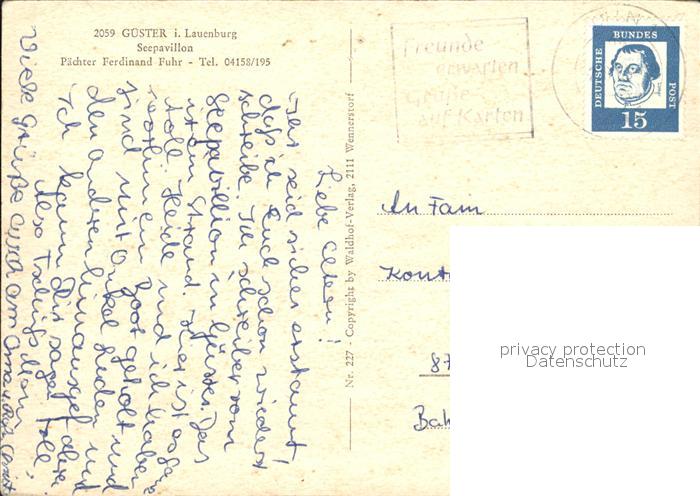 2059 GÜSTER i. Lauenburg
Seepavillon
Pächter Ferdinand Fuhr - Tel. 04158/195
Freunde
erwarten
Grüße
auf Karten
DEUTSCHE BUNDES POST
15
Nr. 227 - Copyright by Waldhof-Verlag, 2111 Wennerstorf
Liebe Eltern!
Ihr seid sicher erstaunt,
daß ich Euch schon wieder
schreibe. Ich schreibe vom
Seepavillion in Güster. Das
ist am Strand. Hier ist es ganz
toll. Heide und ich haben
ein Boot geholt und
sind mit Onkel und
den andren hinausgefahren
Ich kann Dir sagen toll.
Also Tschüß Mom,
Viele Grüße auch am
An Fam
Kont
87
Bah
privacy protection
Datenschutz